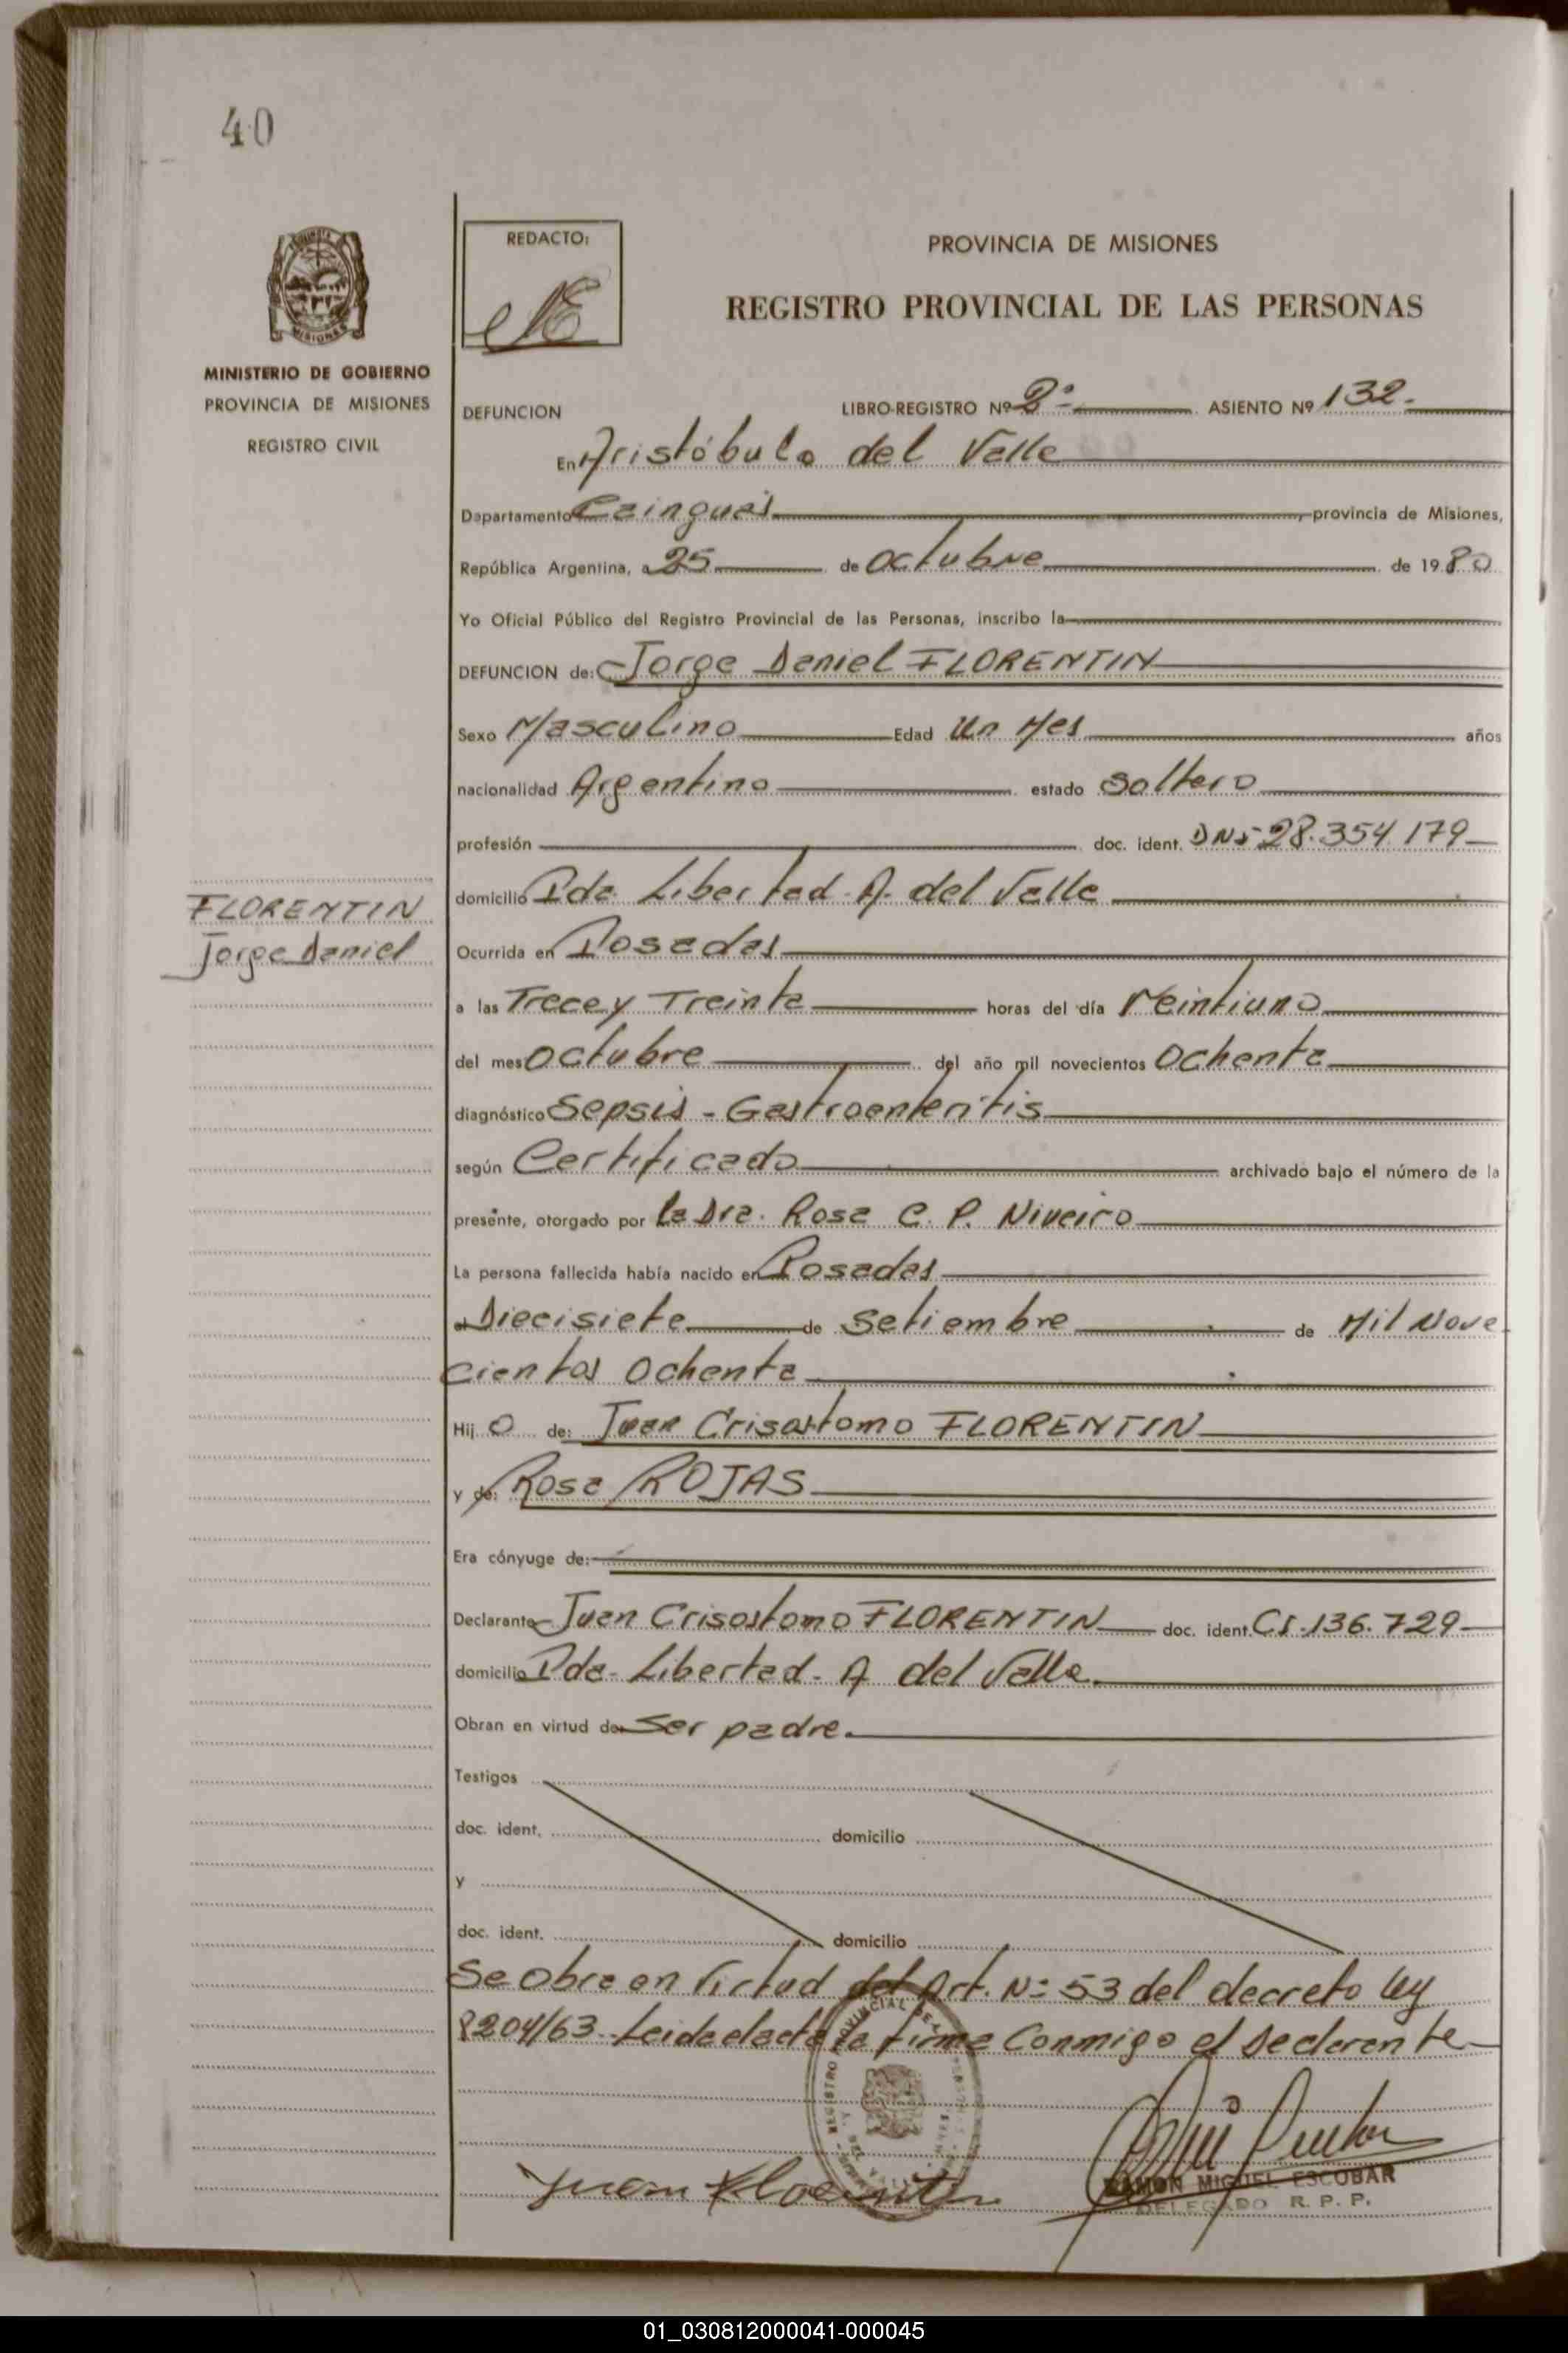 40
REDACTO:
PROVINCIA DE MISIONES
REGISTRO PROVINCIAL DE LAS PERSONAS
MINISTERIO DE GOBIERNO
PROVINCIA DE MISIONES
REGISTRO CIVIL
DEFUNCION LIBRO-REGISTRO Nº 2º ASIENTO Nº 132.
En Aristóbulo del Valle
Departamento Cainguás, provincia de Misiones,
República Argentina, a 25 de octubre de 1980
Yo Oficial Público del Registro Provincial de las Personas, inscribo la
DEFUNCION de: Jorge Daniel FLORENTIN
Sexo Masculino Edad Un Mes años
nacionalidad Argentino estado soltero
profesión doc. ident. DNI 28.354.179
FLORENTIN
Jorge Daniel
domicilio Pda. Libertad. A. del Valle
Ocurrida en Posadas
a las Trece y Treinta horas del día veintiuno
del mes octubre del año mil novecientos ochenta
diagnóstico Sepsis - Gastroenteritis
según Certificado archivado bajo el número de la
presente, otorgado por la Dra. Rosa C. P. Niveiro
La persona fallecida había nacido en Posadas
el Diecisiete de Setiembre de Mil Nove
cientos ochenta
Hij o de: Juan Crisostomo FLORENTIN
y de: Rosa ROJAS
Era cónyuge de:
Declarante Juan Crisostomo FLORENTIN doc. ident. CI. 136.729
domicilio Pda. Libertad. A del Valle.
Obran en virtud de Ser padre.
Testigos
doc. ident. domicilio
y
doc. ident. domicilio
Se obra en virtud del Art. Nº 53 del decreto ley
8204/63. Leida el acta la firma Conmigo el declarante
REGISTRO PROVINCIAL DE
Juan Florentin
RAMON MIGUEL ESCOBAR
DELEGADO R. P. P.
01_030812000041-000045